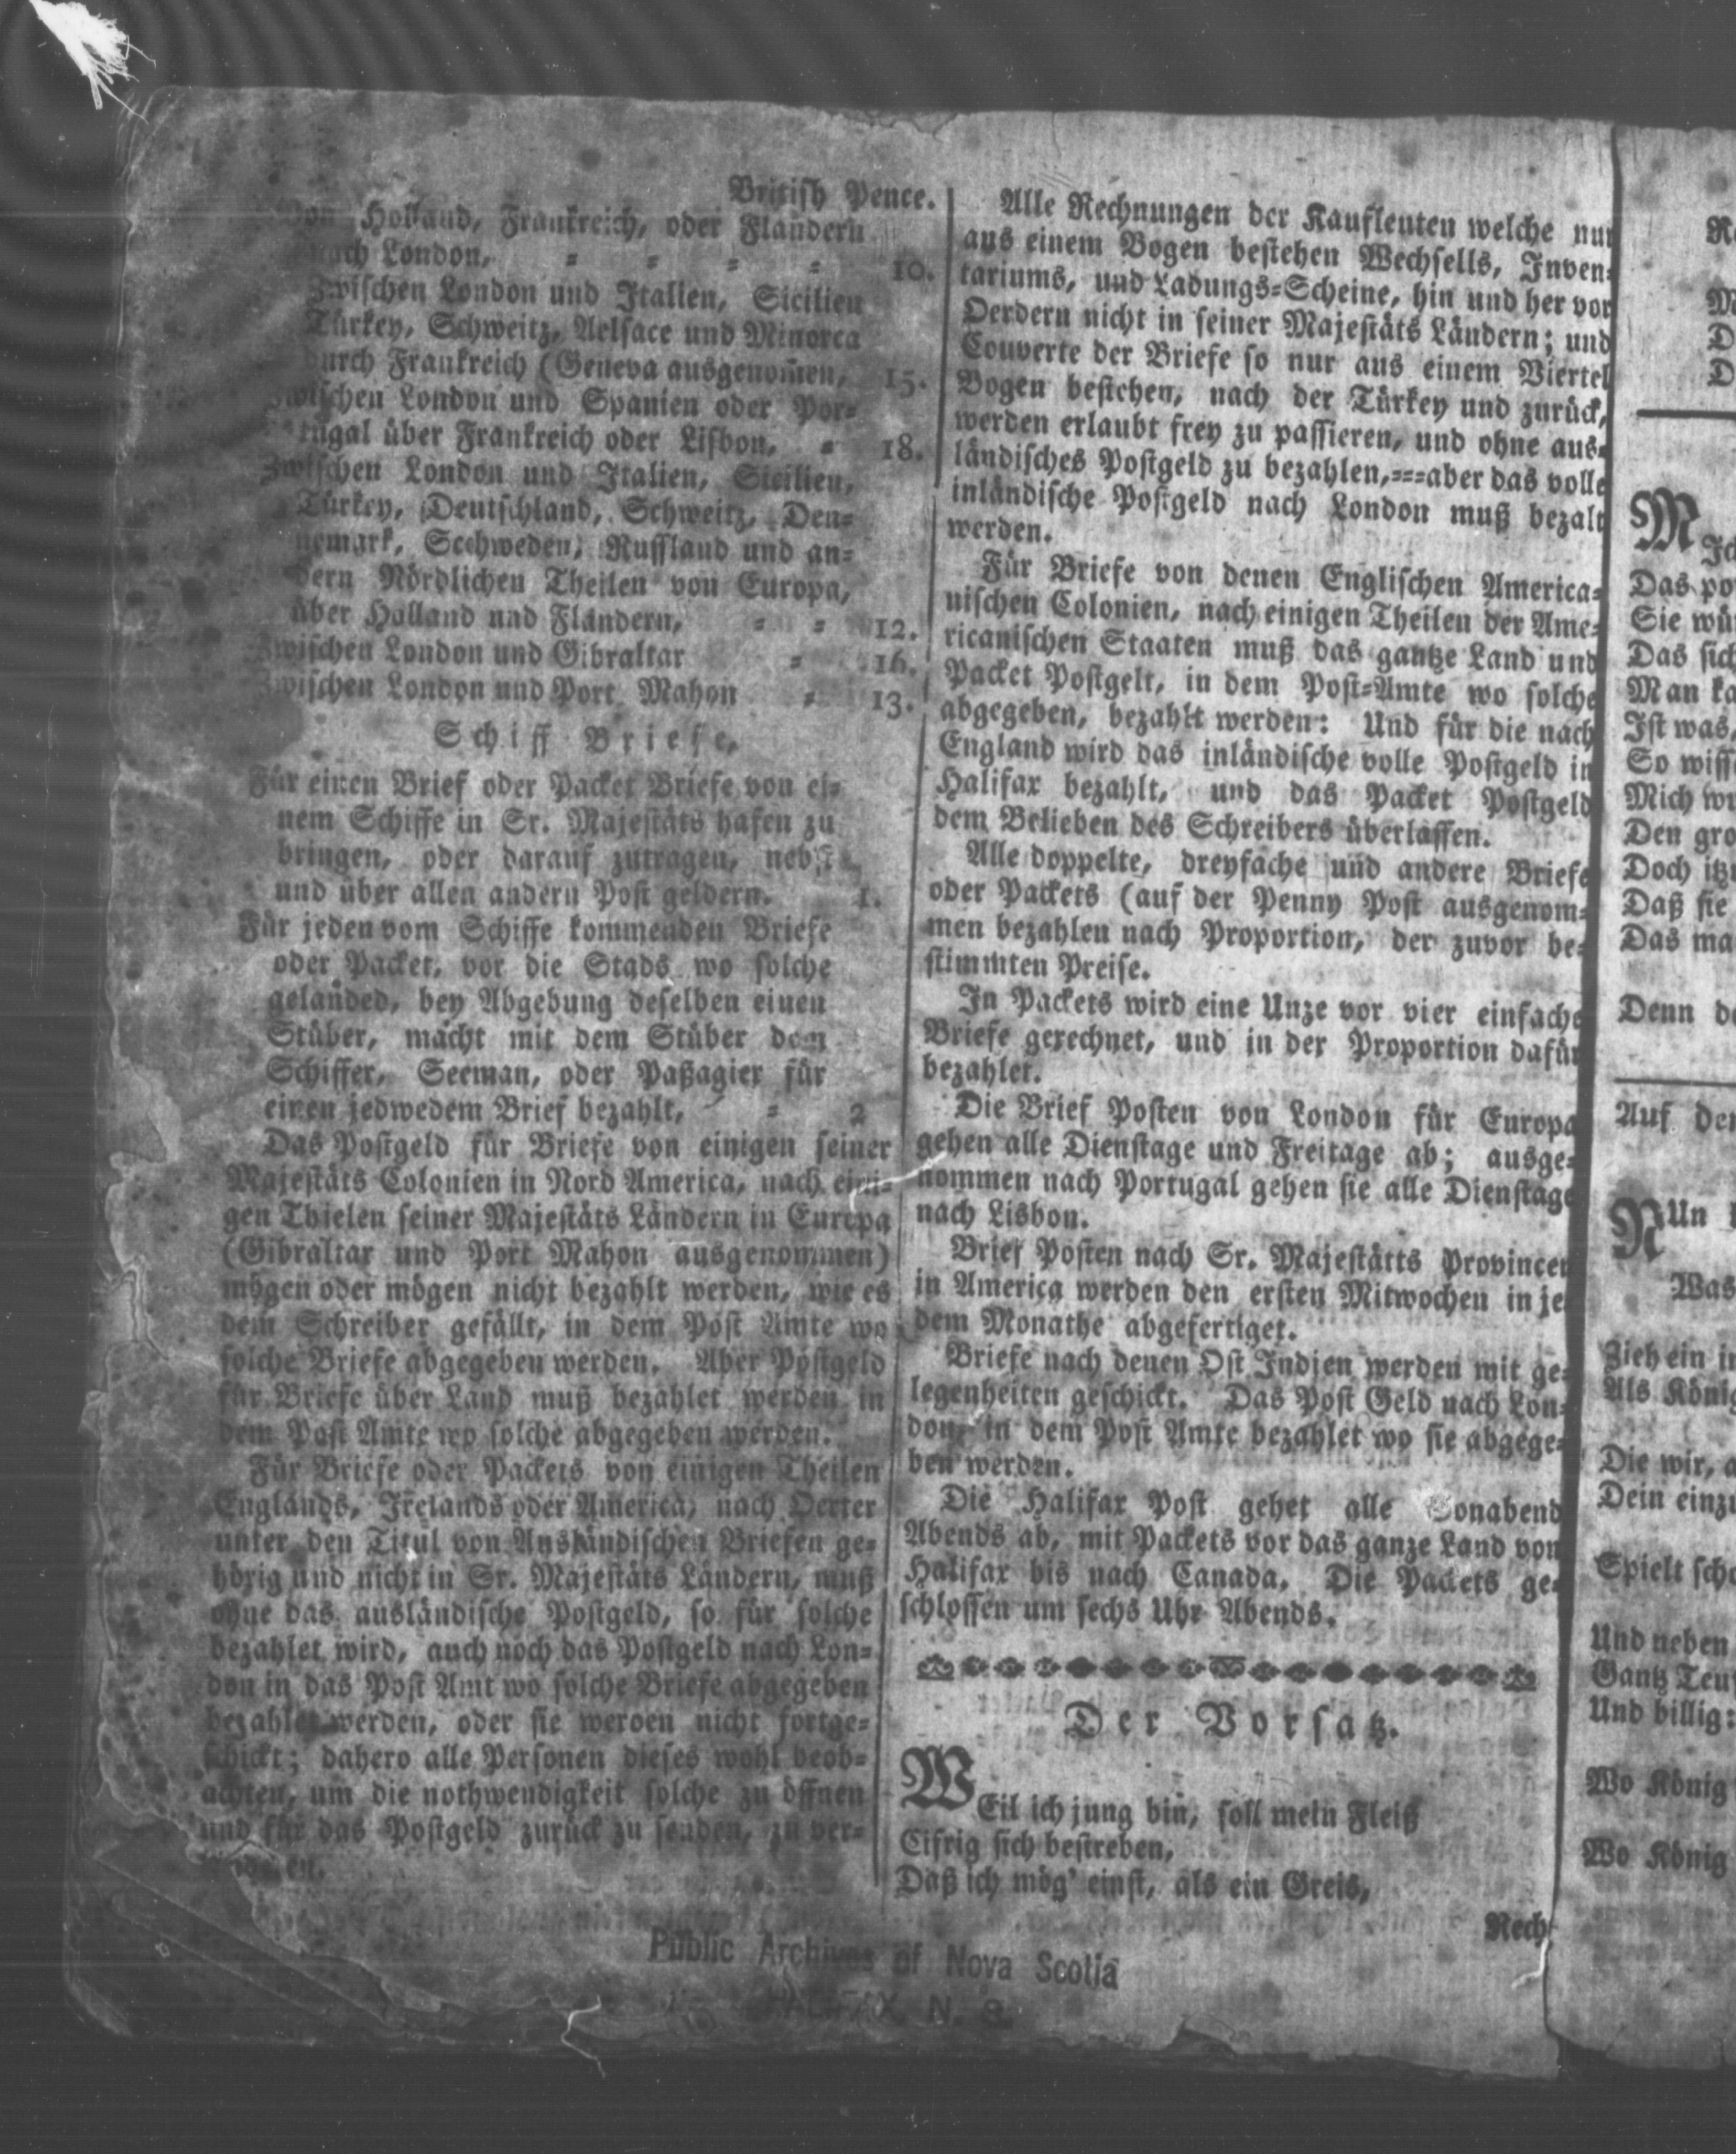 British Pence.
Von Holland, Frankreich, oder Flandern
nach London, = = = = 10.
Zwischen London und Italien, Sicilien
Türkey, Schweitz, Aelsace und Minorca
durch Frankreich (Geneva ausgenom̄en, 15.
Zwischen London und Spanien oder Por=
tugal über Frankreich oder Lisbon, = 18.
Zwischen London und Italien, Sicilien,
Türkey, Deutschland, Schweitz, Den=
nemark, Scchweden, Russland und an=
dern Nördlichen Theilen von Europa,
über Holland nnd Flandern, = = 12.
Zwischen London und Gibraltar = 16.
Zwischen London und Port Mahon = 13.
Schiff Briefe,
Für einen Brief oder Packet Briefe von ei=
nem Schiffe in Sr. Majestäts hafen zu
bringen, oder darauf zutragen, nebst
und über allen andern Post geldern. 1.
Für jeden vom Schiffe kommenden Briefe
oder Packet, vor die Stads wo solche
gelanded, bey Abgebung deselben einen
Stüber, macht mit dem Stüber dem
Schiffer, Seeman, oder Paßagier für
einen jedwedem Brief bezahlt, = 2
Das Postgeld für Briefe von einigen seiner
Majestäts Colonien in Nord America, nach eini-
gen Thielen seiner Majestäts Ländern in Europa
(Gibraltar und Port Mahon ausgenommen)
mögen oder mögen nicht bezahlt werden, wie es
dem Schreiber gefällt, in dem Post Amte wo
solche Briefe abgegeben werden. Aber Postgeld
für Briefe über Land muß bezahlet werden in
dem Post Amte wo solche abgegeben werden.
Für Briefe oder Packets von einigen Theilen
Englands, Irelands oder America, nach Oerter
unter den Titul von Ausländischen Briefen ge=
hörig und nicht in Sr. Majestäts Ländern, muß
ohne das ausländische Postgeld, so für solche
bezahlet wird, auch noch das Postgeld nach Lon=
don in das Post Amt wo solche Briefe abgegeben
bezahlet werden, oder sie werden nicht fortge=
schickt; dahero alle Personen dieses wohl beob=
achten, um die nothwendigkeit solche zu öffnen
und für das Postgeld zurück zu senden, zu ver=
Alle Rechnungen der Kaufleuten welche nur
aus einem Bogen bestehen Wechsells, Inven=
tariums, und Ladungs=Scheine, hin und her von
Oerdern nicht in seiner Majestäts Ländern; und
Couverte der Briefe so nur aus einem Viertel
Bogen bestehen, nach der Türkey und zurück,
werden erlaubt frey zu passieren, und ohne aus=
ländisches Postgeld zu bezahlen,===aber das volle
inländische Postgeld nach London muß bezalt
werden.
Für Briefe von denen Englischen America=
nischen Colonien, nach einigen Theilen der Ame=
ricanischen Staaten muß das gantze Land und
Packet Postgelt, in dem Post=Amte wo solche
abgegeben, bezahlt werden: Und für die nach
England wird das inländische volle Postgeld in
Halifax bezahlt, und das Packet Postgeld
dem Belieben des Schreibers überlassen.
Alle doppelte, dreyfache und andere Briefe
oder Packets (auf der Penny Post ausgenom=
men bezahlen nach Proportion, der zuvor be=
stimmten Preise.
In Packets wird eine Unze vor vier einfache
Briefe gerechnet, und in der Proportion dafür
bezahlet.
Die Brief Posten von London für Europa
gehen alle Dienstage und Freitage ab; ausge=
nommen nach Portugal gehen sie alle Dienstage
nach Lisbon.
Brief Posten nach Sr. Majestätts Provincen
in America werden den ersten Mitwochen in je
dem Monathe abgefertiget.
Briefe nach denen Ost Indien werden mit ge=
legenheiten geschickt. Das Post Geld nach Lon=
don, in dem Post Amte bezahlet wo sie abgege=
ben werden.
Die Halifax Post gehet alle Sonabend
Abends ab, mit Packets vor das ganze Land von
Halifax bis nach Canada. Die Packets ge=
schlossen um sechs Uhr Abends.
Der Vorsatz.
WEil ich jung bin, soll mein Fleiß
Eifrig sich bestreben,
Daß ich mög' einst, als ein Greis,
Rech
Public Archives of Nova Scotia
HALIFAX, N. S.
M Ich
Das
Sie
Das sich
Man
Ist was,
So
Mich
Den
Doch
Daß sie
Das
Denn
Auf
NUn
Was
Zieh ein
Als
Die wir,
Dein
Spielt
Und neben
Gantz
Und billig:
Wo König
Wo König